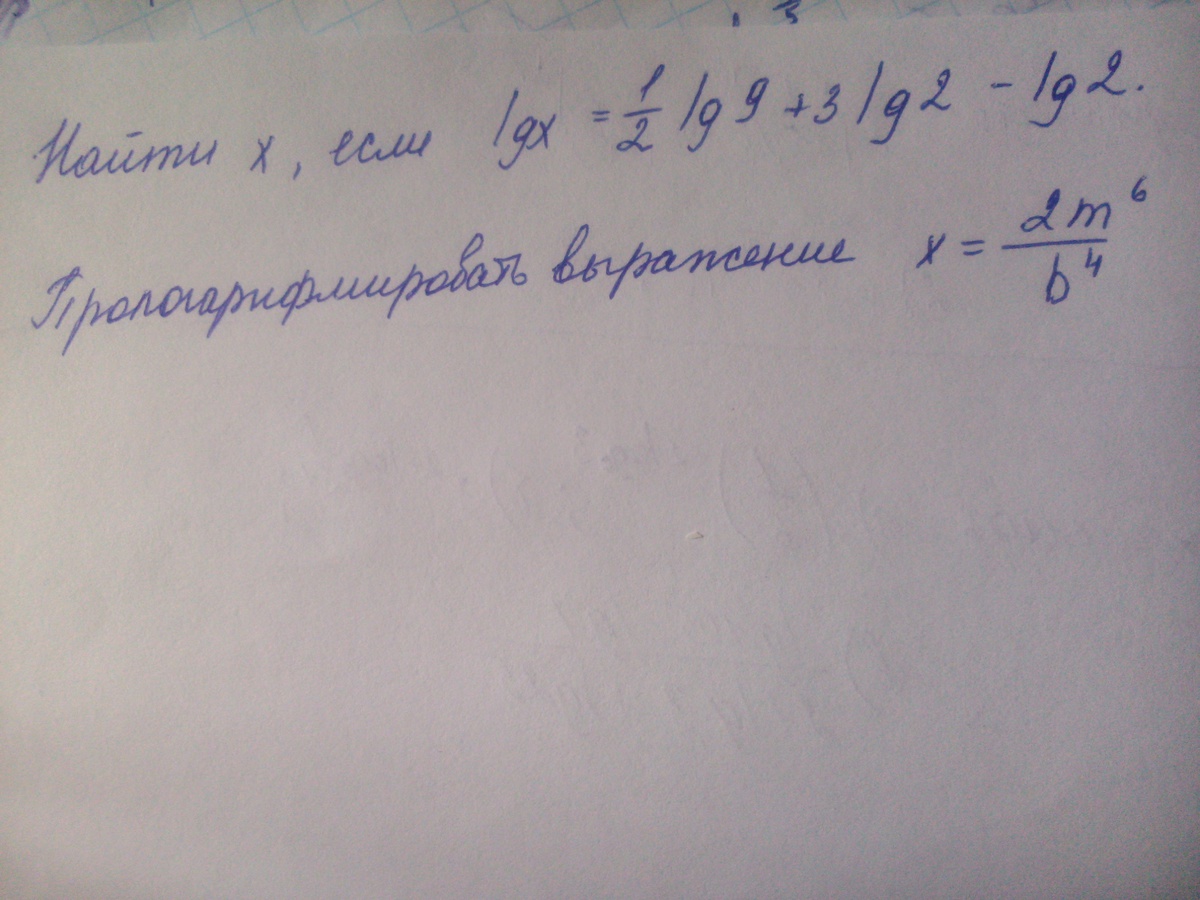 Найти x, если lgx = 1/2 lg 9 + 3 lg 2 - lg 2.
Прологарифмировать выражение x = 2m⁶/b⁴